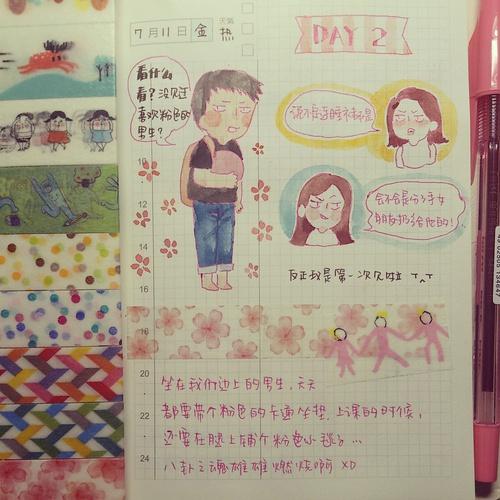 7月11日 金 天氣 热
DAY 2
看什么
看？没见过
喜欢粉色的
男生？
说不定
会不会是分手女
朋友 给他的！
反正我是第一次见啦 T^T
10
12
14
16
18
20
22
24
坐在我们边上的男生，天天
都要带个粉色的卡通坐垫，上课的时候，
还要在腿上铺个粉色小毯子…
八卦之魂雄雄燃烧啊 XD